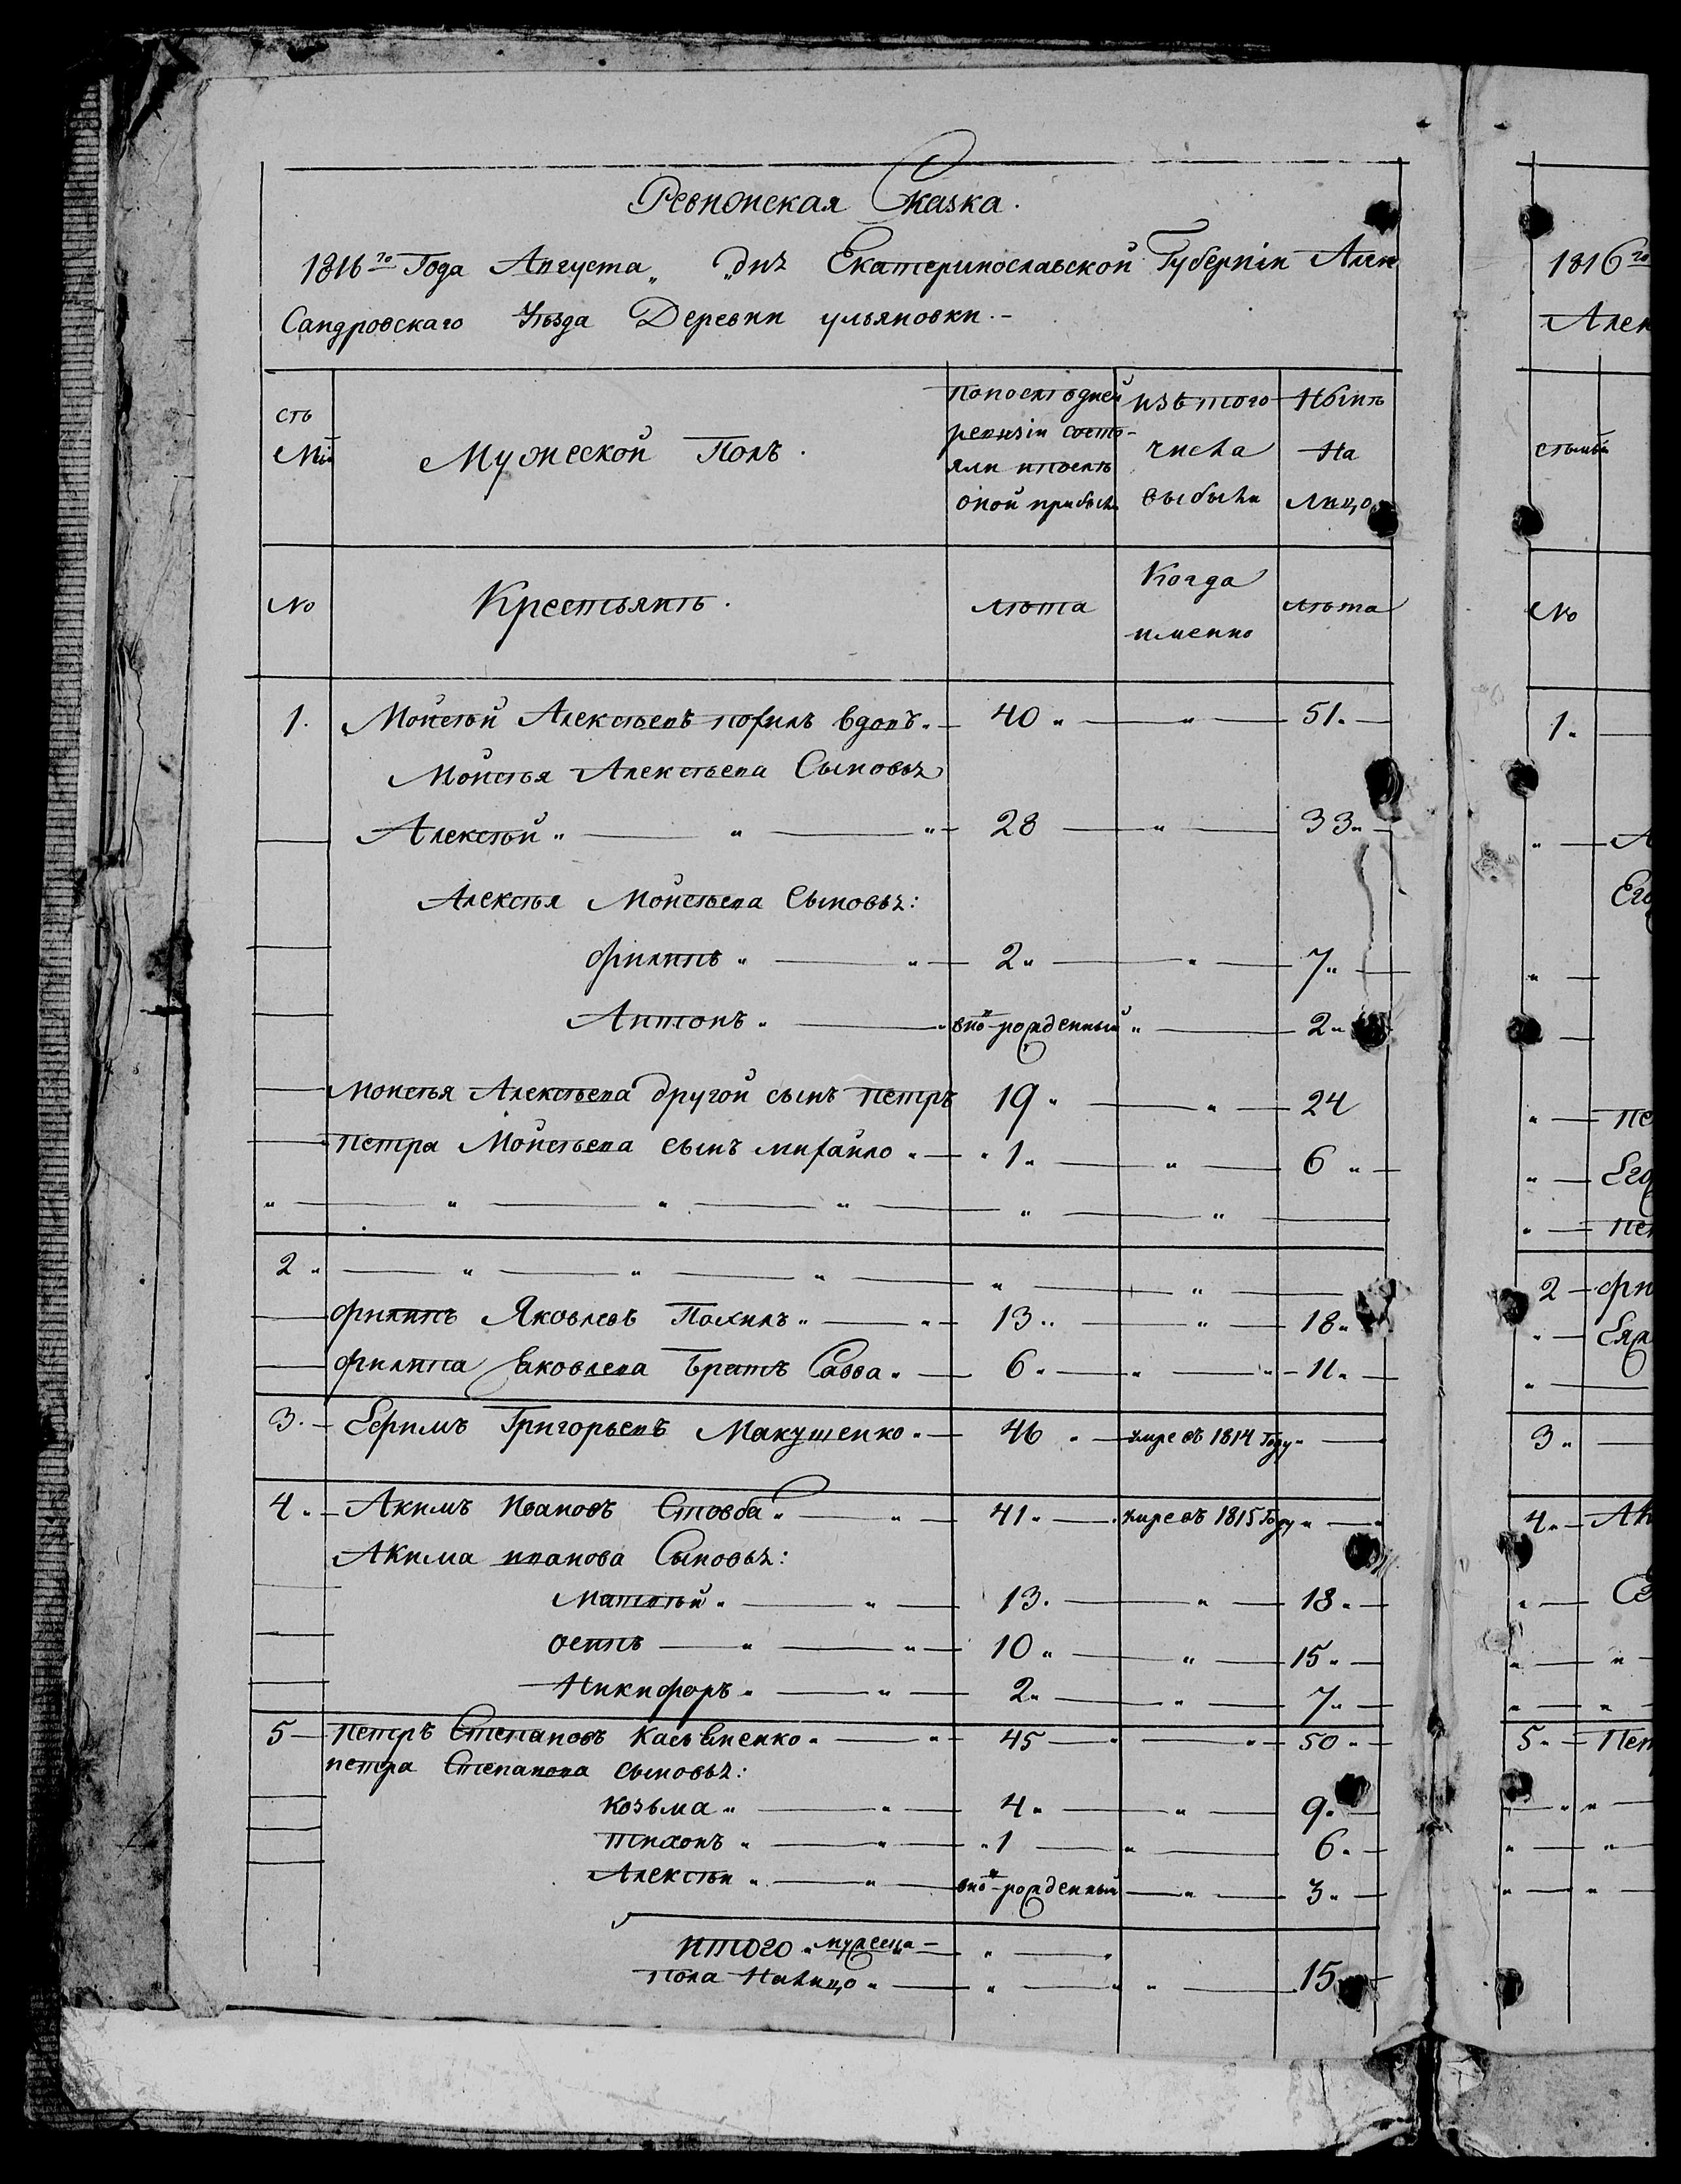 Ревижская Сказка.
1816го Года Августа „ „ днѧ Екатеринославской Губерніи Алек
Сандровскаго Уѣзда Деревни ульяновки.-
сѣ мьи
Мужеской Полъ.
попослѣдней ревизіи состо- яли ипослѣ оной прибыли
изъ того числа выбыли
Нынѣ На лицо
№
Крестьянѣ.
лѣта
Когда именно
лѣта
1. Мойсѣй Алексѣевъ вдовъ. 40 „ „ 51.
Мойсѣя Алексѣева Сыновья
Алексѣй „ „ „ 28 „ 33.
Алексѣя Мойсѣева Сыновья:
филипъ „ „ 2 „ „ 7 „
Антонъ „ „ вно рожденный „ 2 „
Мойсѣя Алексѣева другой сынъ петръ 19 „ „ 24
петра Мойсѣева сынъ михайло „ „ 1 „ „ 6 „
„ „ „ „ „ „
2 „ „ „ „ „ „
филипъ Яковлевъ Похилъ „ „ 13 „ „ 18 „
филипа Яковлева Братъ Савва „ 6 „ „ „ 11 „
3. Ефимъ Григорьевъ Макушенко „ 46 „ умре въ 1814 Году „
4 „ Акимъ Ивановъ Стовба „ „ 41 „ умре въ 1815 Году „
Акима иванова Сыновья:
Матвѣй „ „ 13. „ 18 „
осипъ „ „ 10 „ „ 15 „
Никифоръ „ „ 2 „ „ 7 „
5 петръ Степановъ „ „ 45 „ „ 50 „
петра Степанова сыновья:
козьма „ „ 4 „ „ 9 „
тихонъ „ „ „ 1 „ 6 „
Алексѣй „ „ вно рожденный „ 3 „
итого „ мужеска „ „
пола Налицо „ „ „ „ 15
1816го
Алек
сѣмьи
№
1 „
„ А
Его
„
„
„ пе
„ Его
„ пет
2 фи
„
„
3 „
4 „ Ак
„ Се
„ „
„ „
5 „ Пет
„ „
„ „
„ „